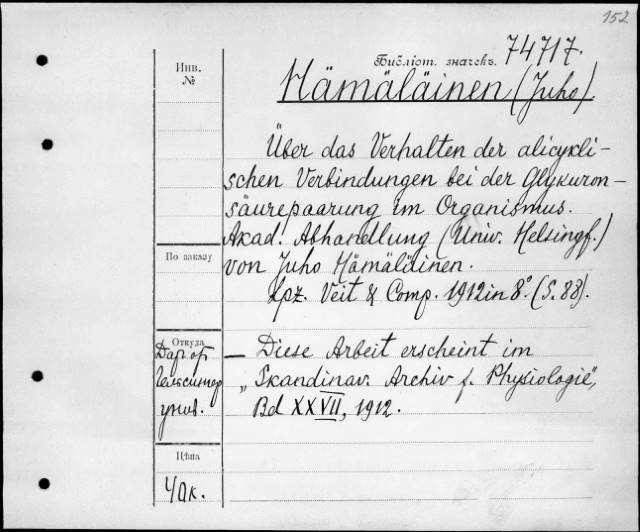 152
Библіот. значекъ. 74717.
Инв. №
Hämäläinen (Juho).
Über das Verhalten der alicykli-
schen Verbindungen bei der Glykuron-
säurepaarung im Organismus.
Akad. Abhandlung (Univ. Helsingf.)
По заказу
von Juho Hämäläinen.
Lpz. Veit & Comp. 1912 in 8°. (S. 88).
Откуда
Дар от
Гельсингфор
унив.
— Diese Arbeit erscheint im
„Skandinav. Archiv f. Physiologie",
Bd XXVII, 1912.
Цѣна